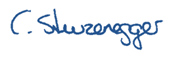 C. Sturzenegger